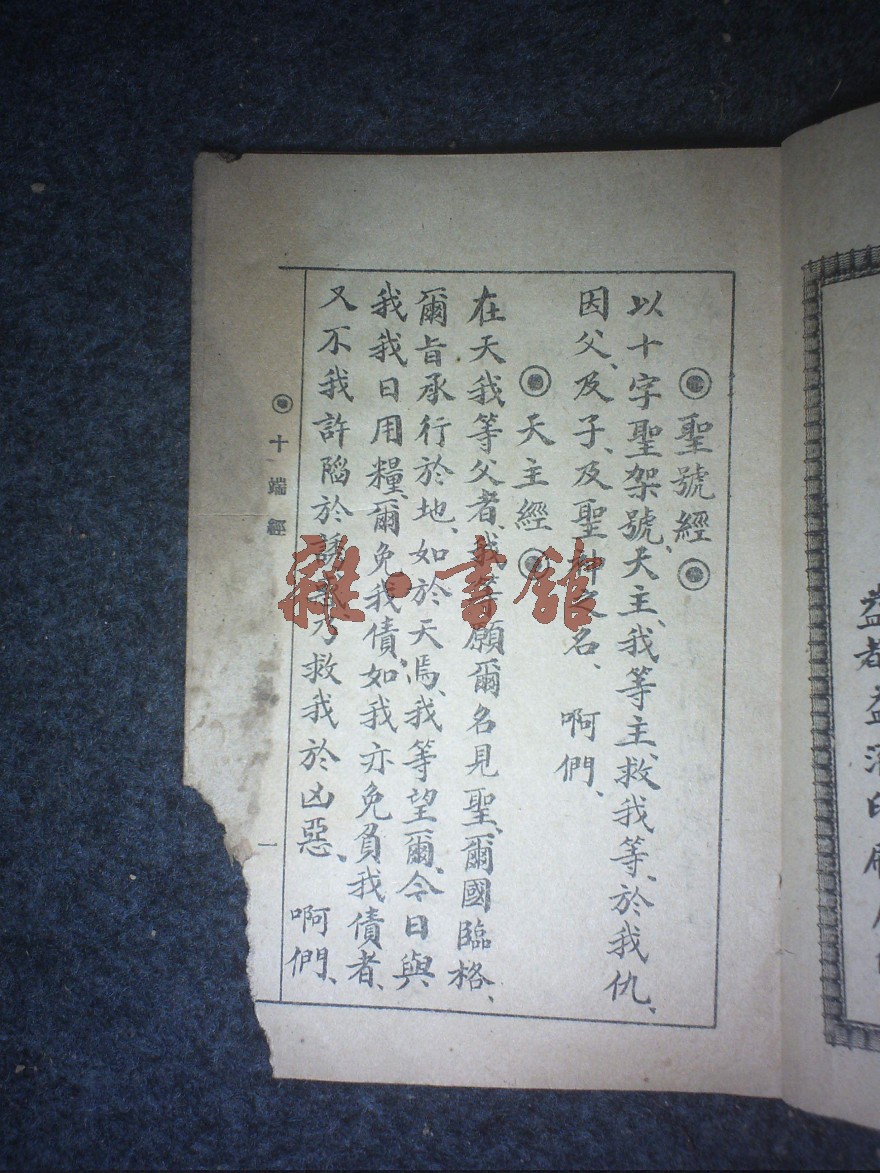 聖號經
以十字聖架號、天主、我等主、救我等、於我仇、
因父、及子、及聖神之名、 啊們、
天主經
在天我等父者、我等願爾名見聖、爾國臨格、
爾旨承行於地、如於天焉、我等望爾、今日與
我我日用糧、爾免我債、如我亦免負我債者、
又不我許陷於誘感、乃救我於凶惡、 啊們、
十端經
一
益都益濟印
雜·書館